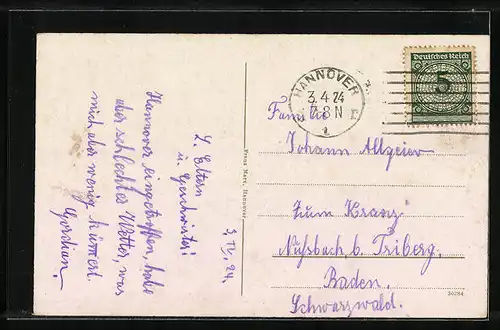 3. IV. 24.
L. Eltern
u. Geschwister!
Hannover eingetroffen, habe
aber schlechtes Wetter, was
mich aber wenig kümmert.
Gordian.
Franz Marx, Hannover
HANNOVER
3.4.24
7-8 N
1
Deutsches Reich
5
Familie
Johann Allgeier
Zum Kranz
Nußbach b. Triberg.
Baden.
Schwarzwald.